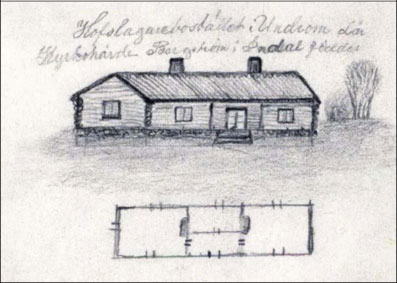 Hofslagarebostället i Undrom där
Kyrkohärde Bergström i Indal föddes